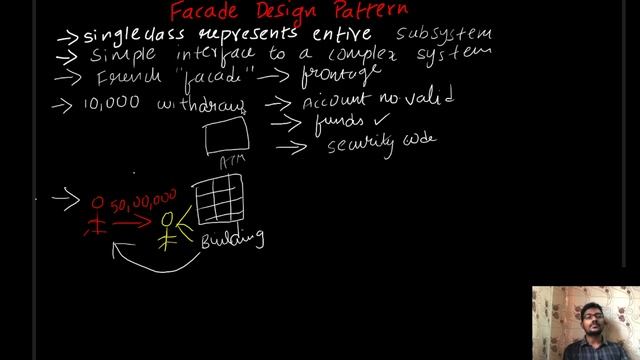 Facade Design Pattern
→ single class represents entire subsystem
→ Simple interface to a complex system
→ French "facade" → frontage
→ 10,000 withdraw → Account no valid
→ funds ✓
→ security code
ATM
→ 50,00,000
Building